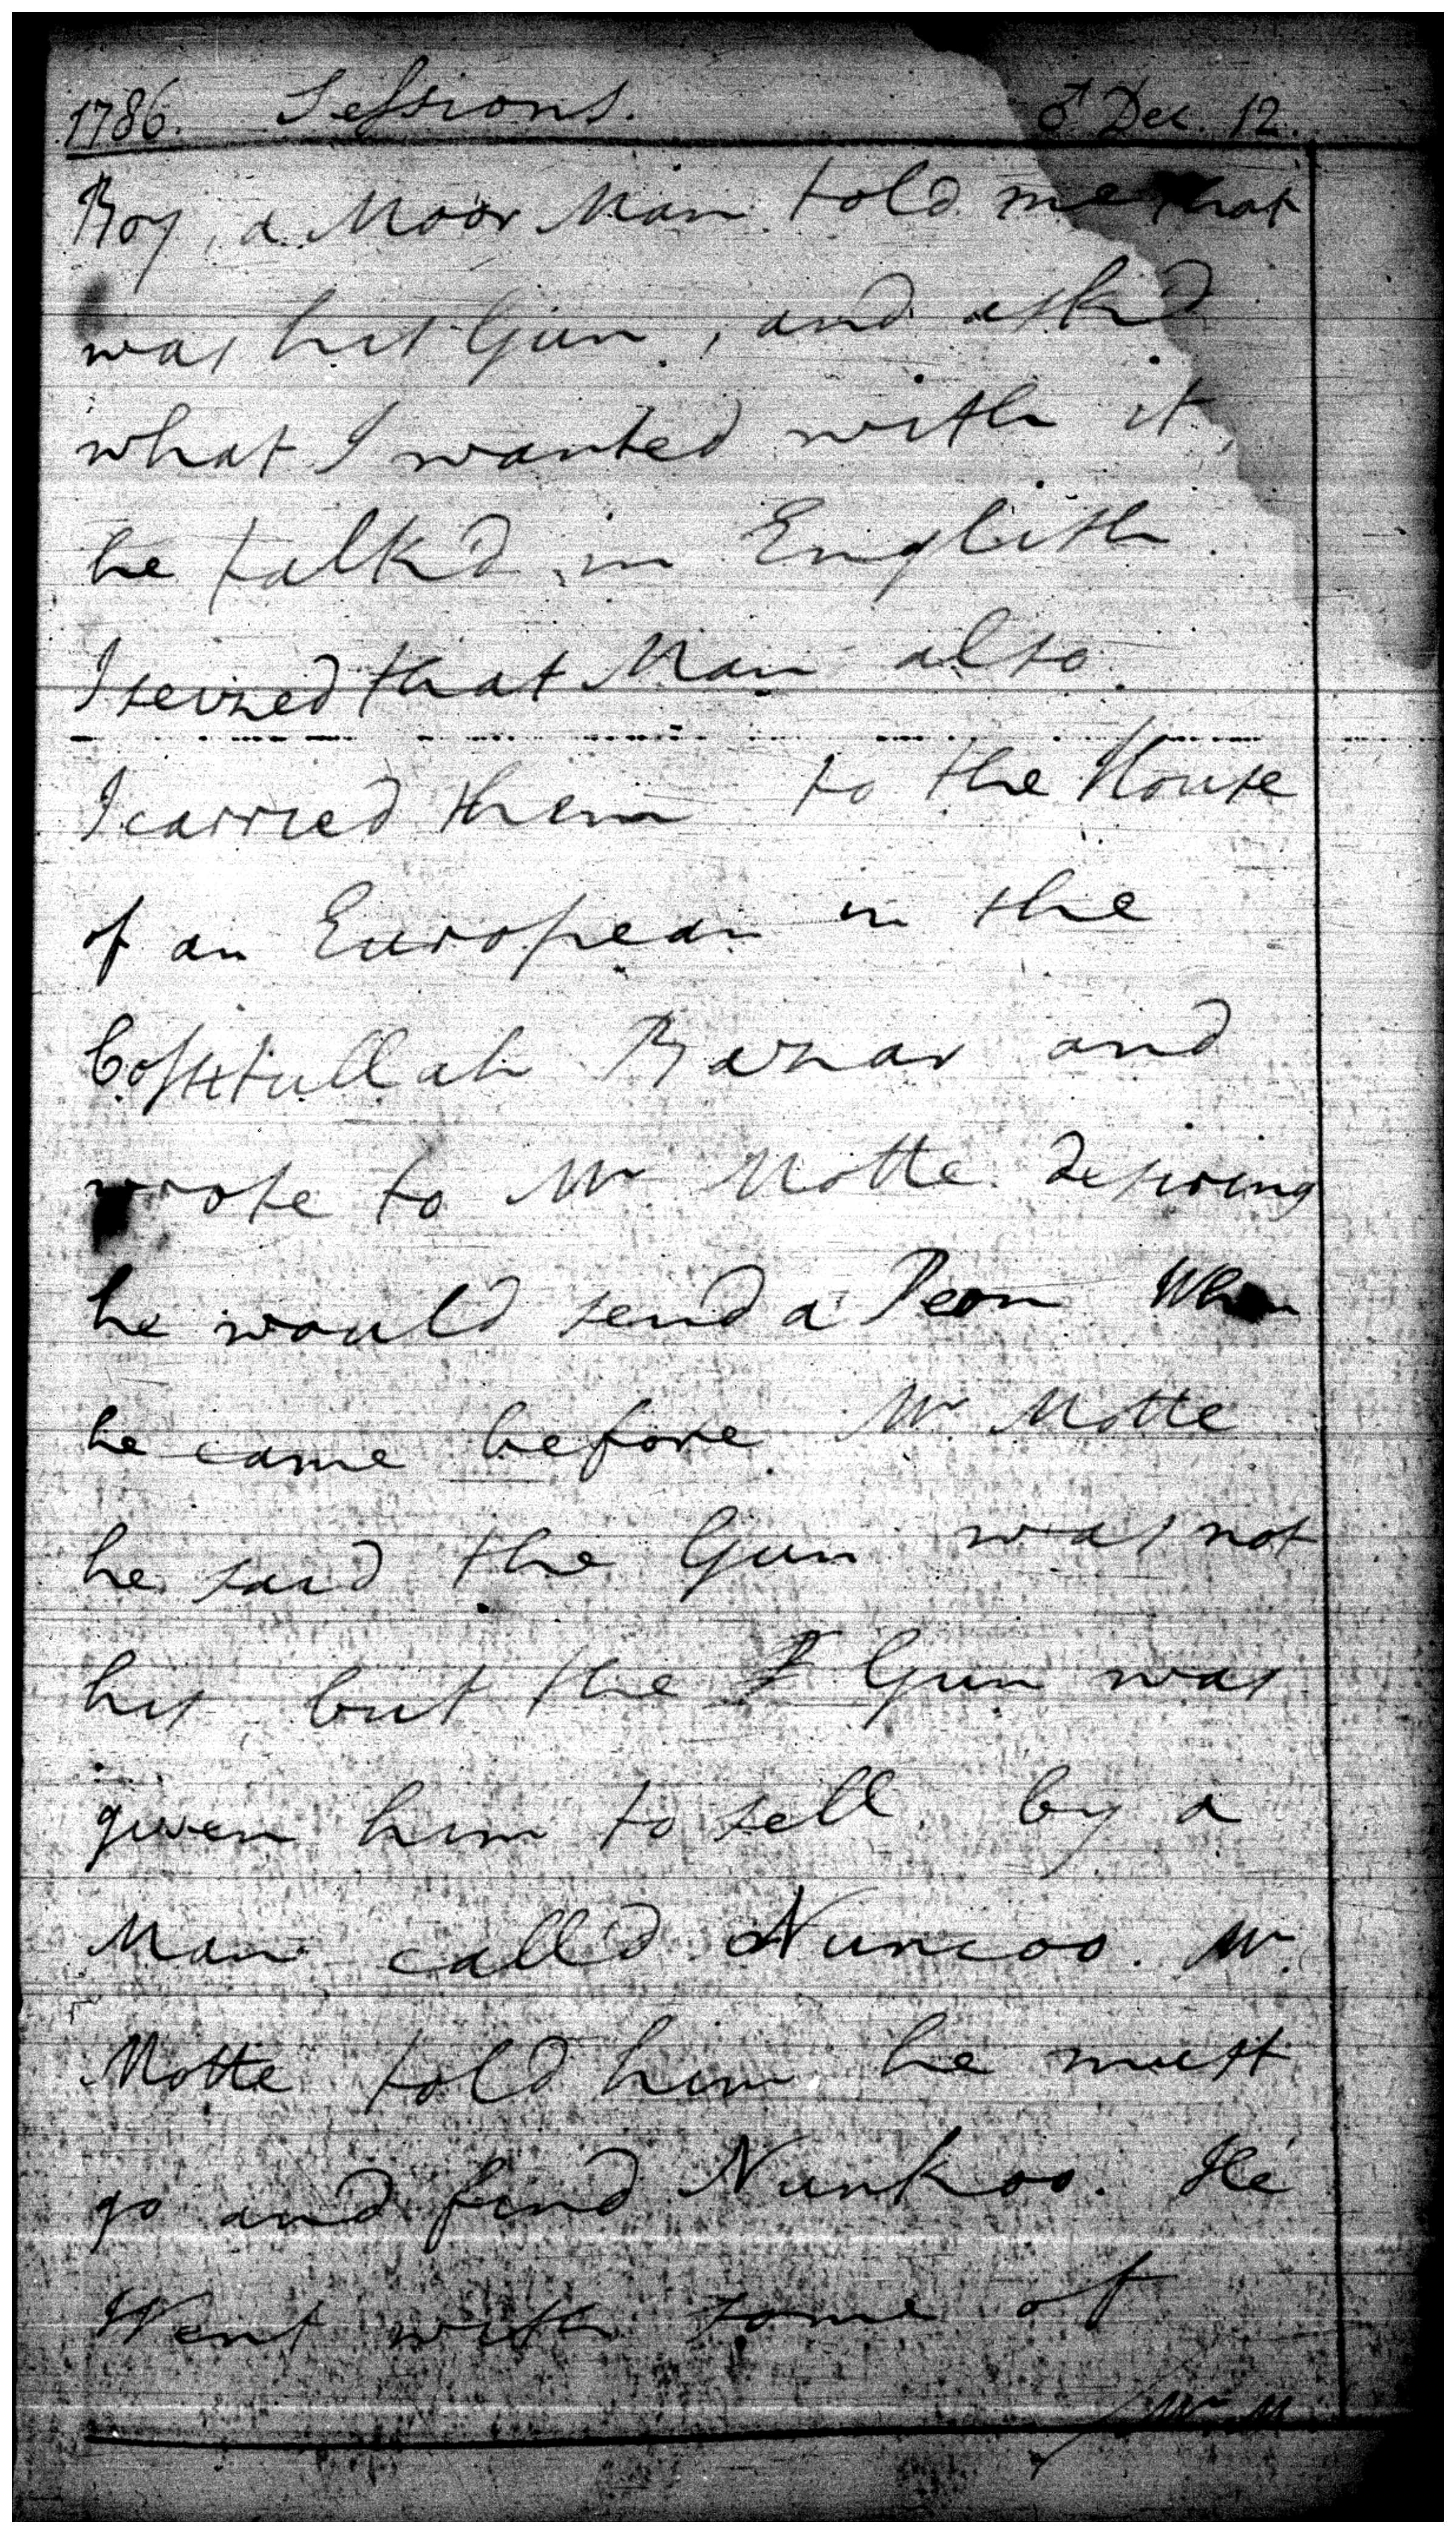 1786. Sessions. ♂ Dec. 12.
Boy, a Moor Man told me that
was his Gun, and ask'd
what I wanted with it,
he talk'd in English.
I seized that Man also.
I carried them to the House
of an European in the
Cossitullah Bazar and
wrote to Mr Motte desiring
he would send a Peon When
he came before Mr Motte
he said the Gun was not
his but the Gun was
given him to sell by a
Man call'd Nuncoo. Mr.
Motte told him he must
go and find Nunkoo. He
Went with some of
Mr M